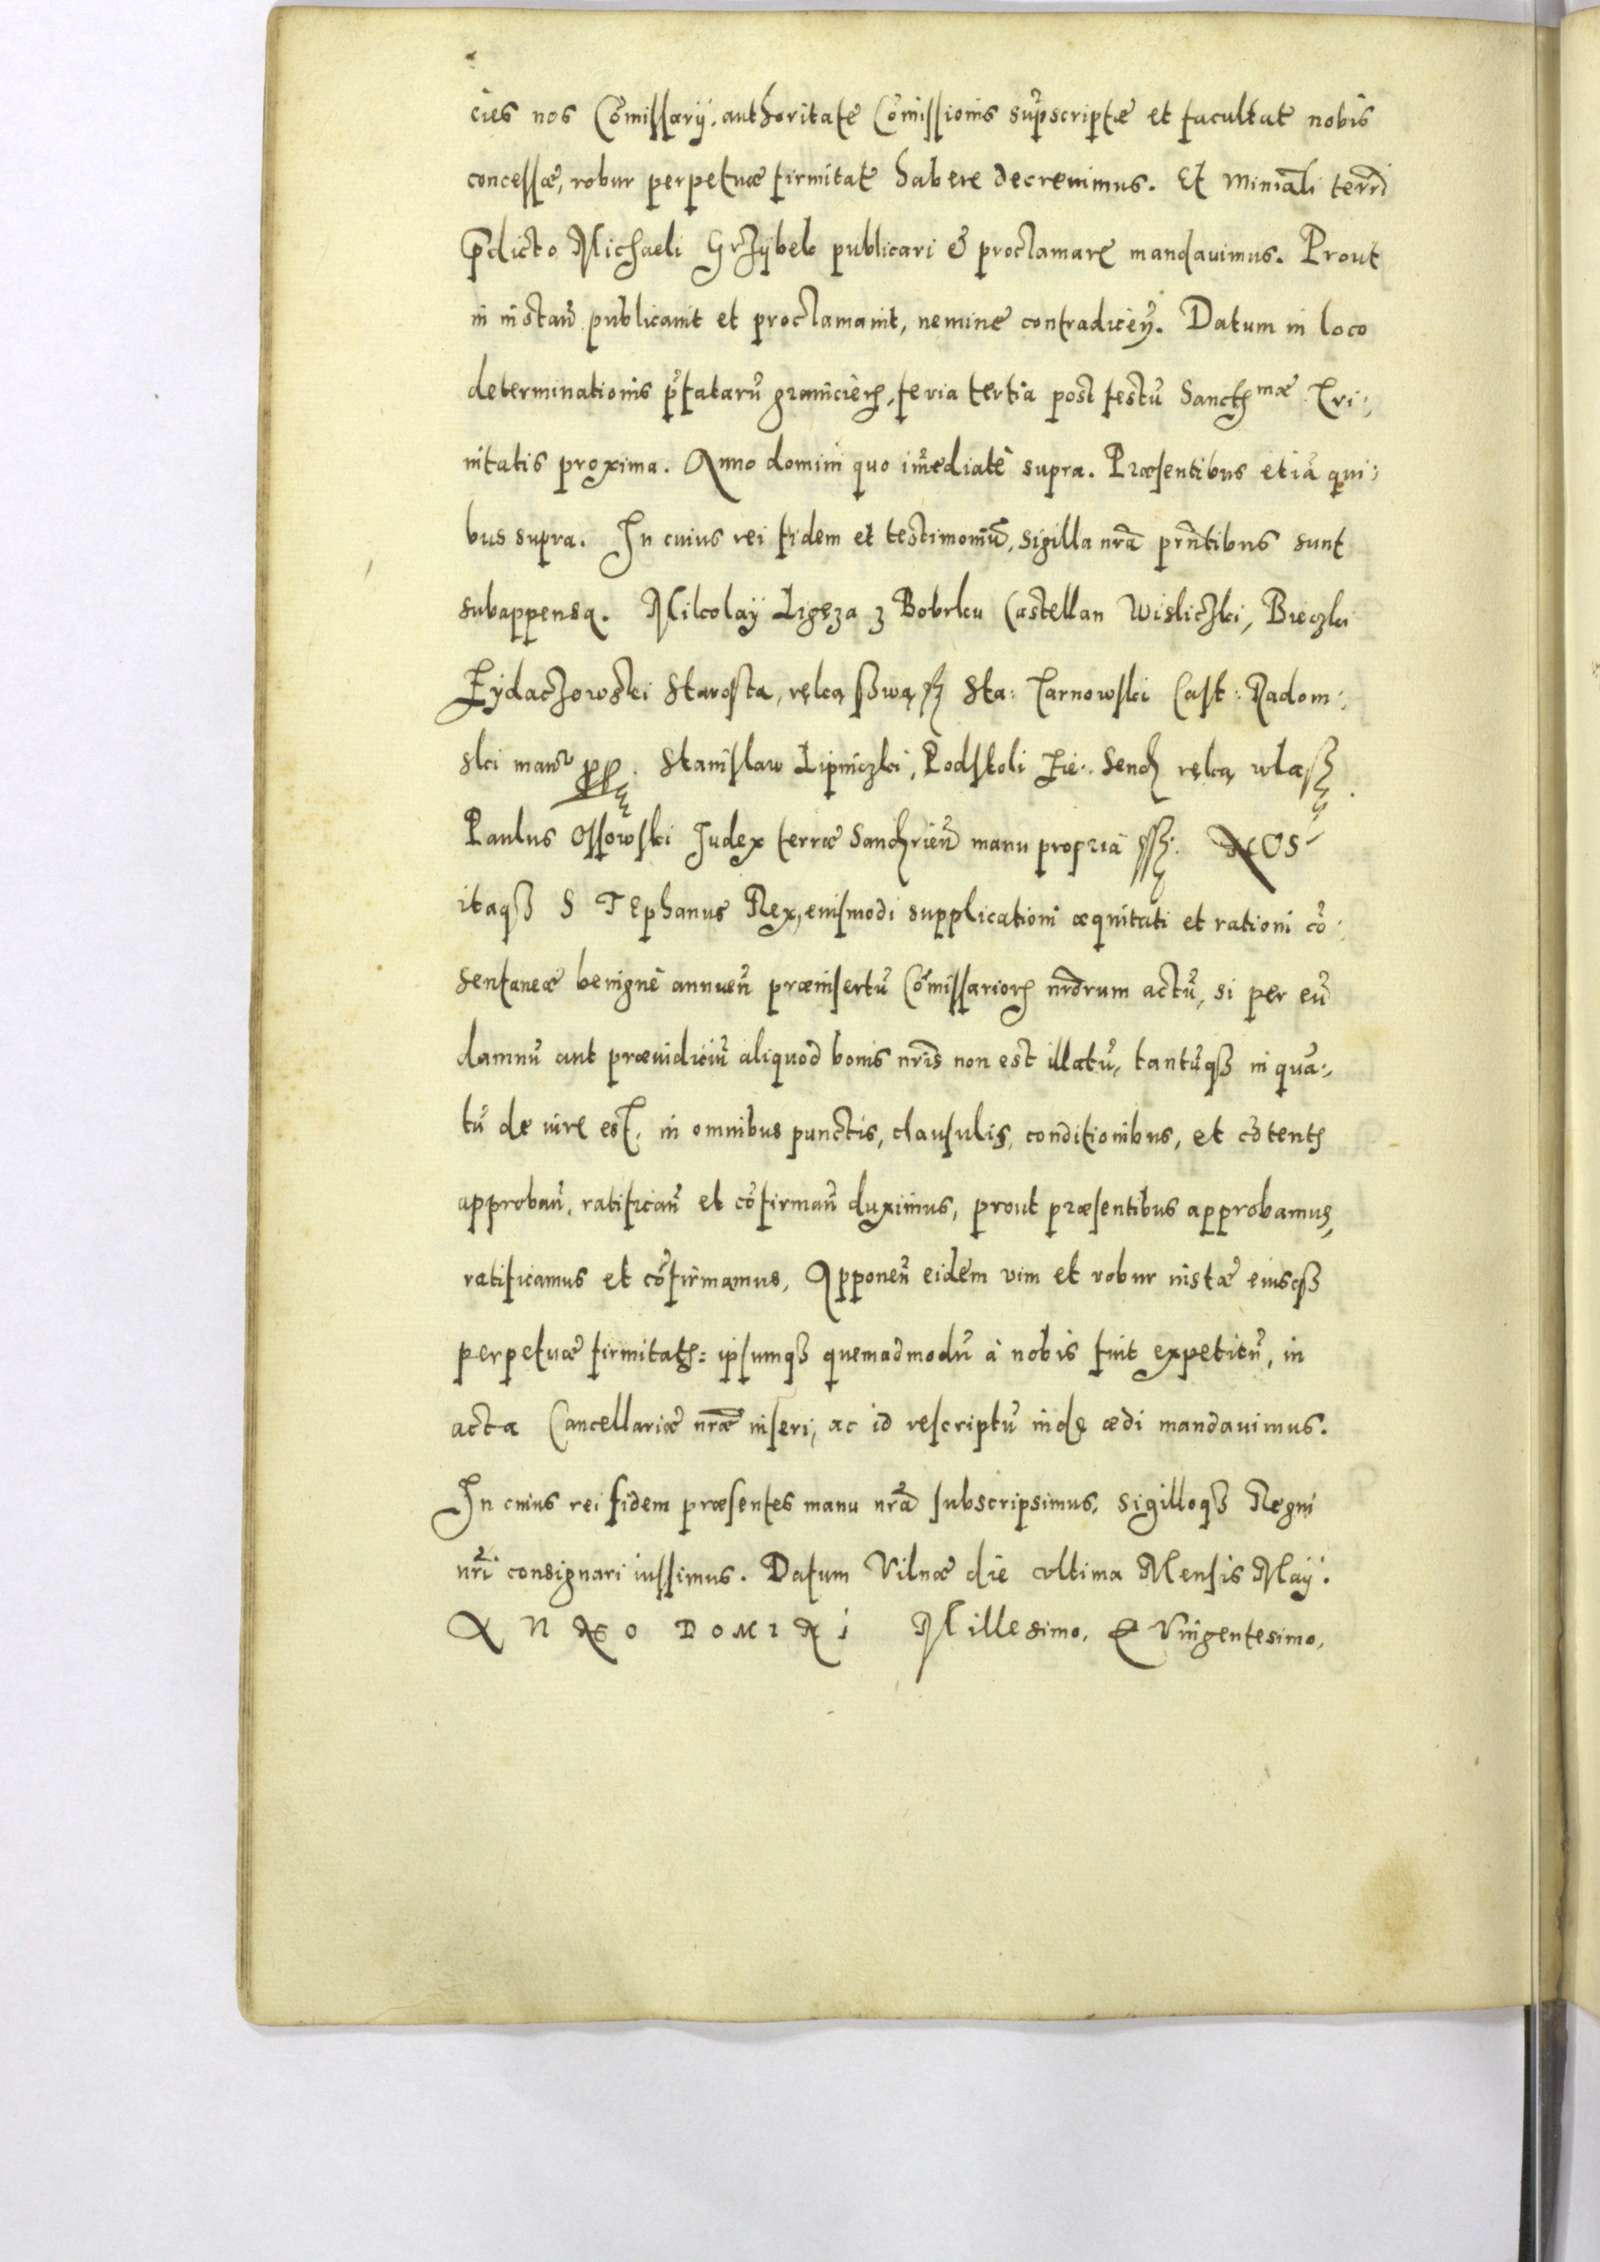 cies nos Cõmissarÿ, authoritate Cõmissionis sup̃scriptæ et facultate nobis
concessæ, robur perpetuæ firmitate habere decrevimus. Et Miniãli terrĩ
p̃dicto Michaeli Grzÿbek publicari & proclamare mandavimus. Prout
in instañ publicavit et proclamavit, nemine contradiceñ. Datum in loco
determinationis p̃fatarũ granicierũ, feria tertia post festũ Sanctis mæ Tri:,
nitatis proxima. Anno domini quo im̃ediatè supra. Præsentibus etiã qui:,
bus supra. In cuius rei fidem et testimoniũ, sigilla nrã prñtibus sunt
subappensa. Mikolaÿ Ligęza z Bobrku Castellan Wisliczki, Bieczki
Zÿdaczowski Starosta, ręką swą ssz Sta: Tarnowski Cast: Radom:,
ski manu pp. Stanislaw Lipniczki, Podstoli Zie: Send: ręką włass
Paulus Ossowski Iudex terræ Sandzrień manu propria ssz. NOS
itaq₃ STephanus Rex, eiusmodi supplicationi æquitati et rationi cõ:,
sentaneæ benignè annueñ præinsertũ Cõmissariorũ nrõrum actũ, si per eũ
damnũ aut præiudiciũ aliquod bonis nrĩs non est illatũ, tantũq₃ in quã:,
tũ de iure est, in omnibus punctis, clausulis, conditionibus, et cõtentis
approbañ, ratificañ et cõfirmañ duximus, prout præsentibus approbamus,
ratificamus et cõfirmamus, Apponeñ eidem vim et robur iustæ eiusq₃
perpetuæ firmitatis: ipsumq₃ quemadmodũ à nobis fuit expetitũ, in
acta Cancellariæ nrãe inseri, ac id rescriptũ inde ædi mandavimus.
In cuius rei fidem præsentes manu nrã subscripsimus, sigilloq₃ Regni
nrĩ consignari iussimus. Datum Vilnæ die ultima Mensis Maÿ.
ANNO DOMINI Millesimo, Quingentesimo,